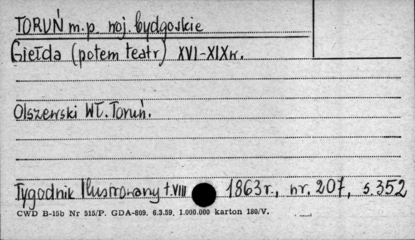 TORUŃ m.p. woj. bydgoskie
Giełda (potem teatr) XVI-XIX w.
Olszewski Wł. Toruń.
Tygodnik Ilustrowany t.VIII 1863r., nr. 207, s. 352
CWD B-15b Nr 515/P. GDA-809. 6.3.59. 1.000.000 karton 180/V.